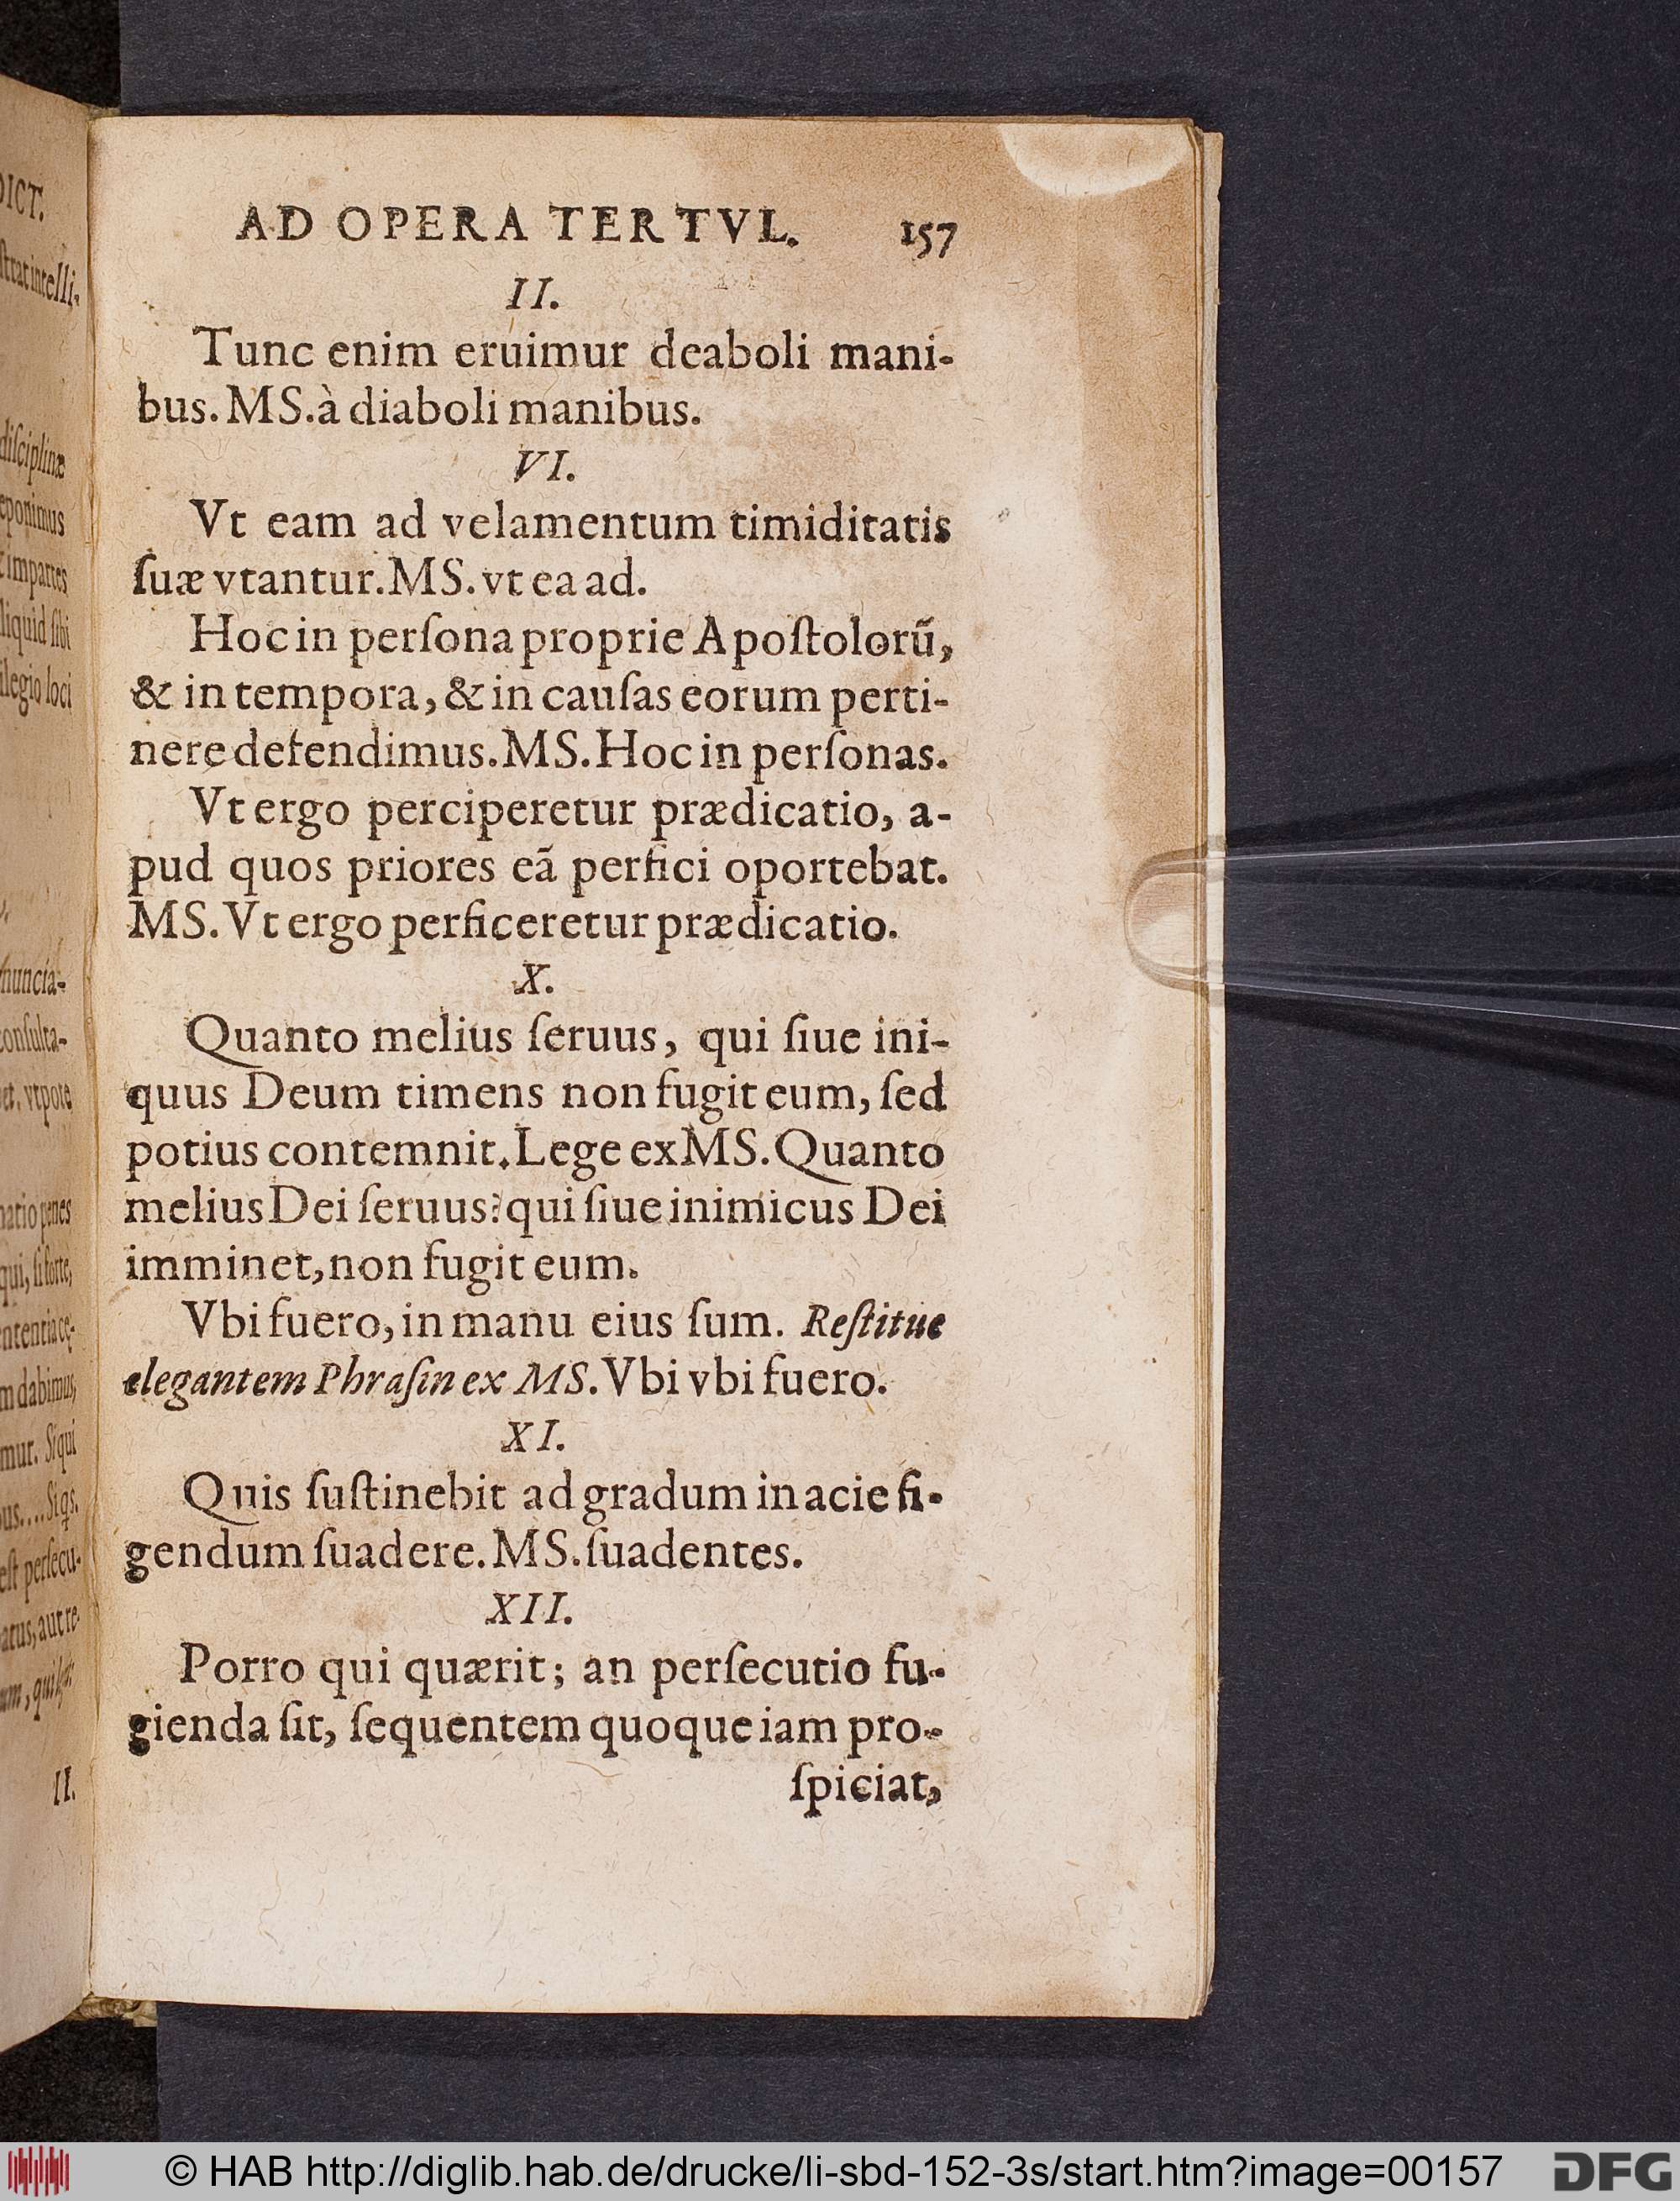 DICT.
intelli-
disciplinæ
eponimus
impartes
liquid sibi
ilegio loci
nuncia-
consulta-
vtpote
natio penes
qui, si forte,
m dabimus,
mur. Siqui
bus.... Siqs.
est persecu-
atus, aut re-
II.
AD OPERA TERTVL. 157
II.
Tunc enim eruimur deaboli mani-
bus. MS. à diaboli manibus.
VI.
Vt eam ad velamentum timiditatis
ſuæ vtantur. MS. vt ea ad.
Hoc in perſona proprie Apoſtolorũ,
& in tempora, & in cauſas eorum perti-
nere defendimus. MS. Hoc in perſonas.
Vt ergo perciperetur prædicatio, a-
pud quos priores eã perfici oportebat.
MS. Vt ergo perficeretur prædicatio.
X.
Quanto melius ſeruus, qui ſiue ini-
quus Deum timens non fugit eum, ſed
potius contemnit. Lege ex MS. Quanto
melius Dei ſeruus? qui ſiue inimicus Dei
imminet, non fugit eum.
Vbi fuero, in manu eius ſum. Reſtitue
elegantem Phraſin ex MS. Vbi vbi fuero.
XI.
Quis ſuſtinebit ad gradum in acie fi-
gendum ſuadere. MS. ſuadentes.
XII.
Porro qui quærit; an perſecutio fu-
gienda ſit, ſequentem quoque iam pro-
ſpiciat,
© HAB http://diglib.hab.de/drucke/li-sbd-152-3s/start.htm?image=00157
DFG